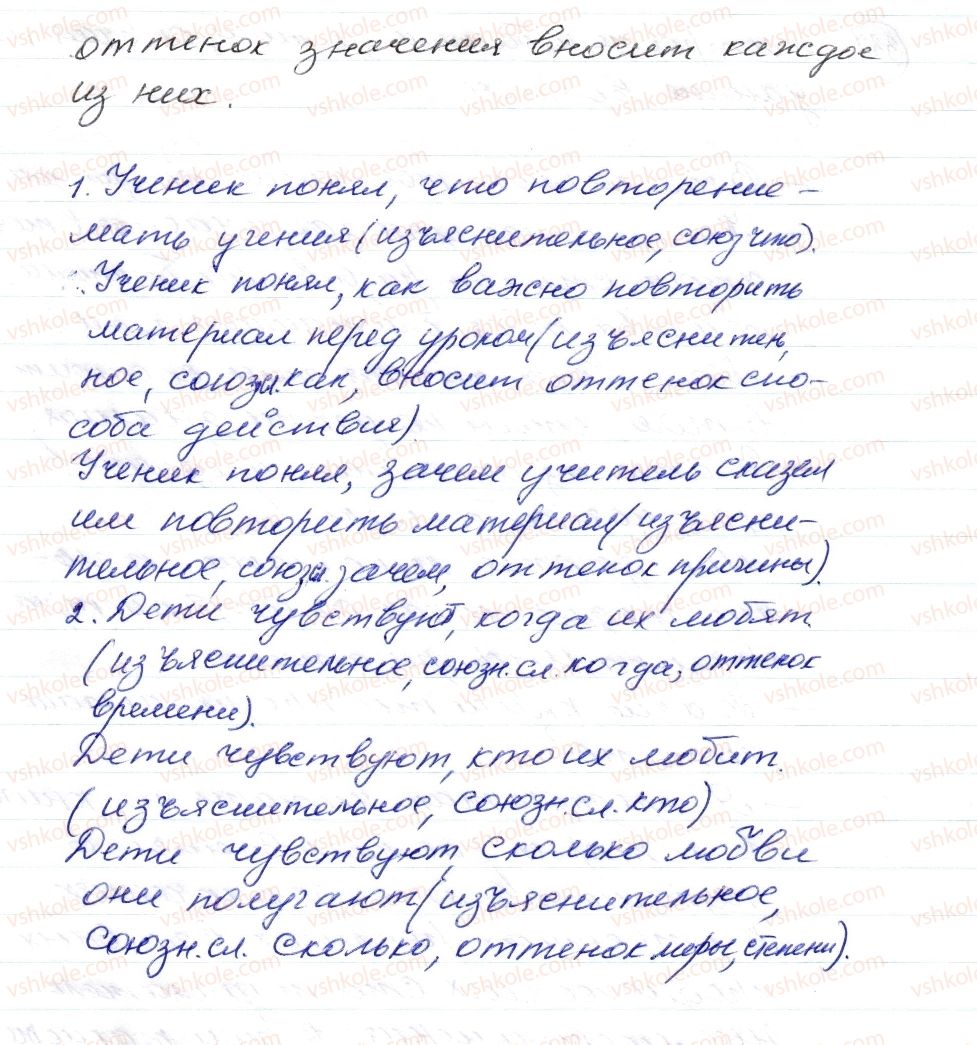 оттенок значения вносит каждое
из них.
1. Ученик понял, что повторение -
мать учения (изъяснительное, союз что).
Ученик понял, как важно повторить
материал перед уроком (изъяснитель,
ное, союзн. как, вносит оттенок спо-
соба действия).
Ученик понял, зачем учитель сказал
им повторить материал (изъясни-
тельное, союзн. зачем, оттенок причины).
2. Дети чувствуют, когда их любят.
(изъяснительное, союзн. сл. когда, оттенок
времени).
Дети чувствуют, кто их любит.
(изъяснительное, союзн. сл. кто)
Дети чувствуют, сколько любви
они получают (изъяснительное,
союзн. сл. сколько, оттенок меры, степени).